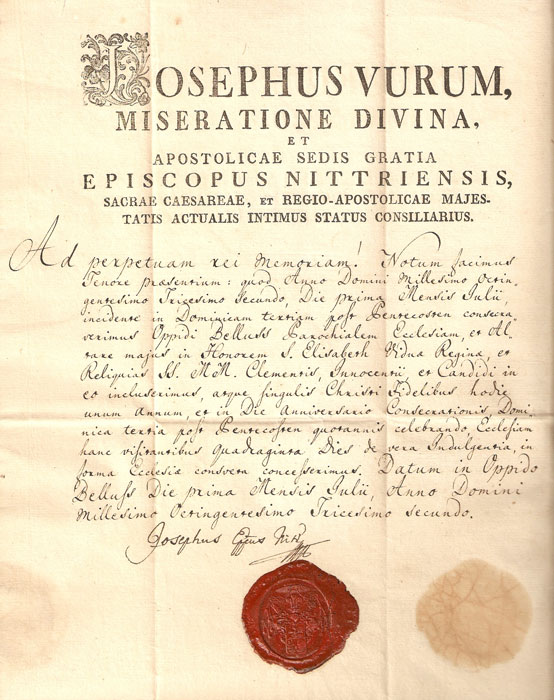 JOSEPHUS VURUM,
MISERATIONE DIVINA,
ET
APOSTOLICAE SEDIS GRATIA
EPISCOPUS NITTRIENSIS,
SACRAE CAESAREAE, ET REGIO-APOSTOLICAE MAJES-
TATIS ACTUALIS INTIMUS STATUS CONSILIARIUS.
Ad perpetuam rei Memoriam! Notum facimus
Tenore præsentium: quod Anno Domini Millesimo Octin
gentesimo Tricesimo Secundo, Die prima Mensis Julii,
incidente in Dominicam tertiam post Pentecosten consecra
verimus Oppidi Belluss Parochialem Ecclesiam, et Al
tare majus in Honorem S. Elisabeth Viduæ Reginæ, et
Reliquias SS. M.M. Clementis, Innocentii, et Candidi in
eo incluserimus, atque singulis Christi Fidelibus hodie
unum Annum, et in Die Anniversario Consecrationis, Domi
nica tertia post Pentecosten quotannis celebrando Ecclesiam
hanc visitantibus Quadraginta Dies de vera Indulgentia, in
forma Ecclesiæ consveta concesserimus. Datum in Oppido
Belluss Die prima Mensis Julii, Anno Domini
Millesimo Octingentesimo Tricesimo secundo.
Josephus Eppus Nitr